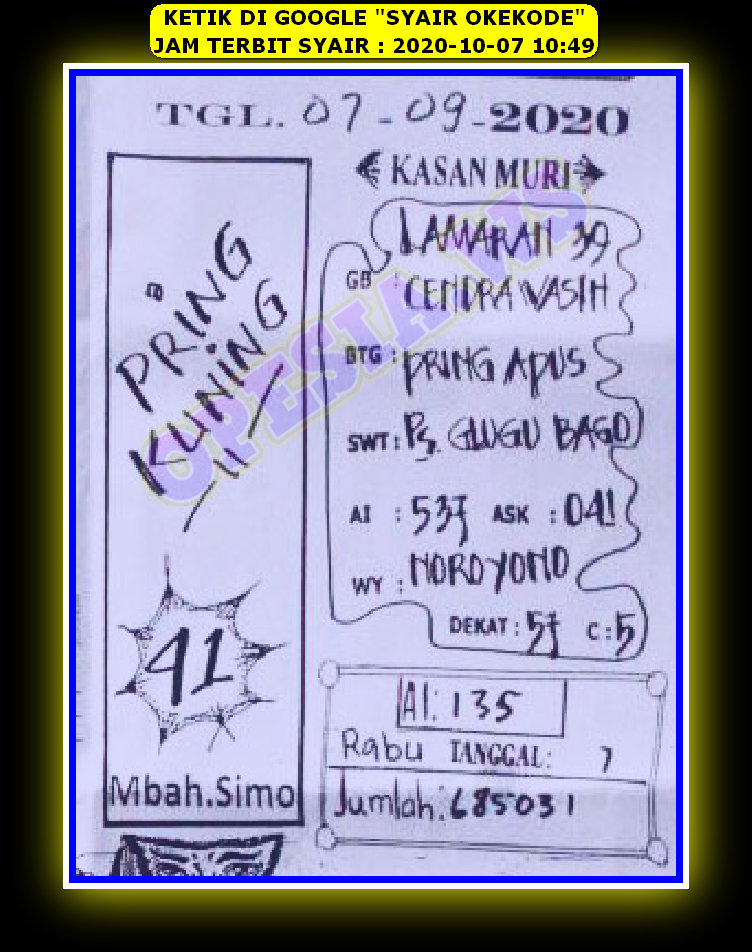 KETIK DI GOOGLE "SYAIR OKEKODE"
JAM TERBIT SYAIR : 2020-10-07 10:49
TGL. 07-09-2020
PRING
KUNING
41
Mbah.Simo
KASAN MURI
LAMARAN 39
GB : CENDRAWASIH
BTG : PRING APUS
SWT : Ps. GLUGU BAGO
AI : 537 ASK : 041
WY : NOROYONO
DEKAT : 57 C : 5
AI : 135
Rabu TANGGAL : 7
Jumlah : 685031
OPESIA.WS